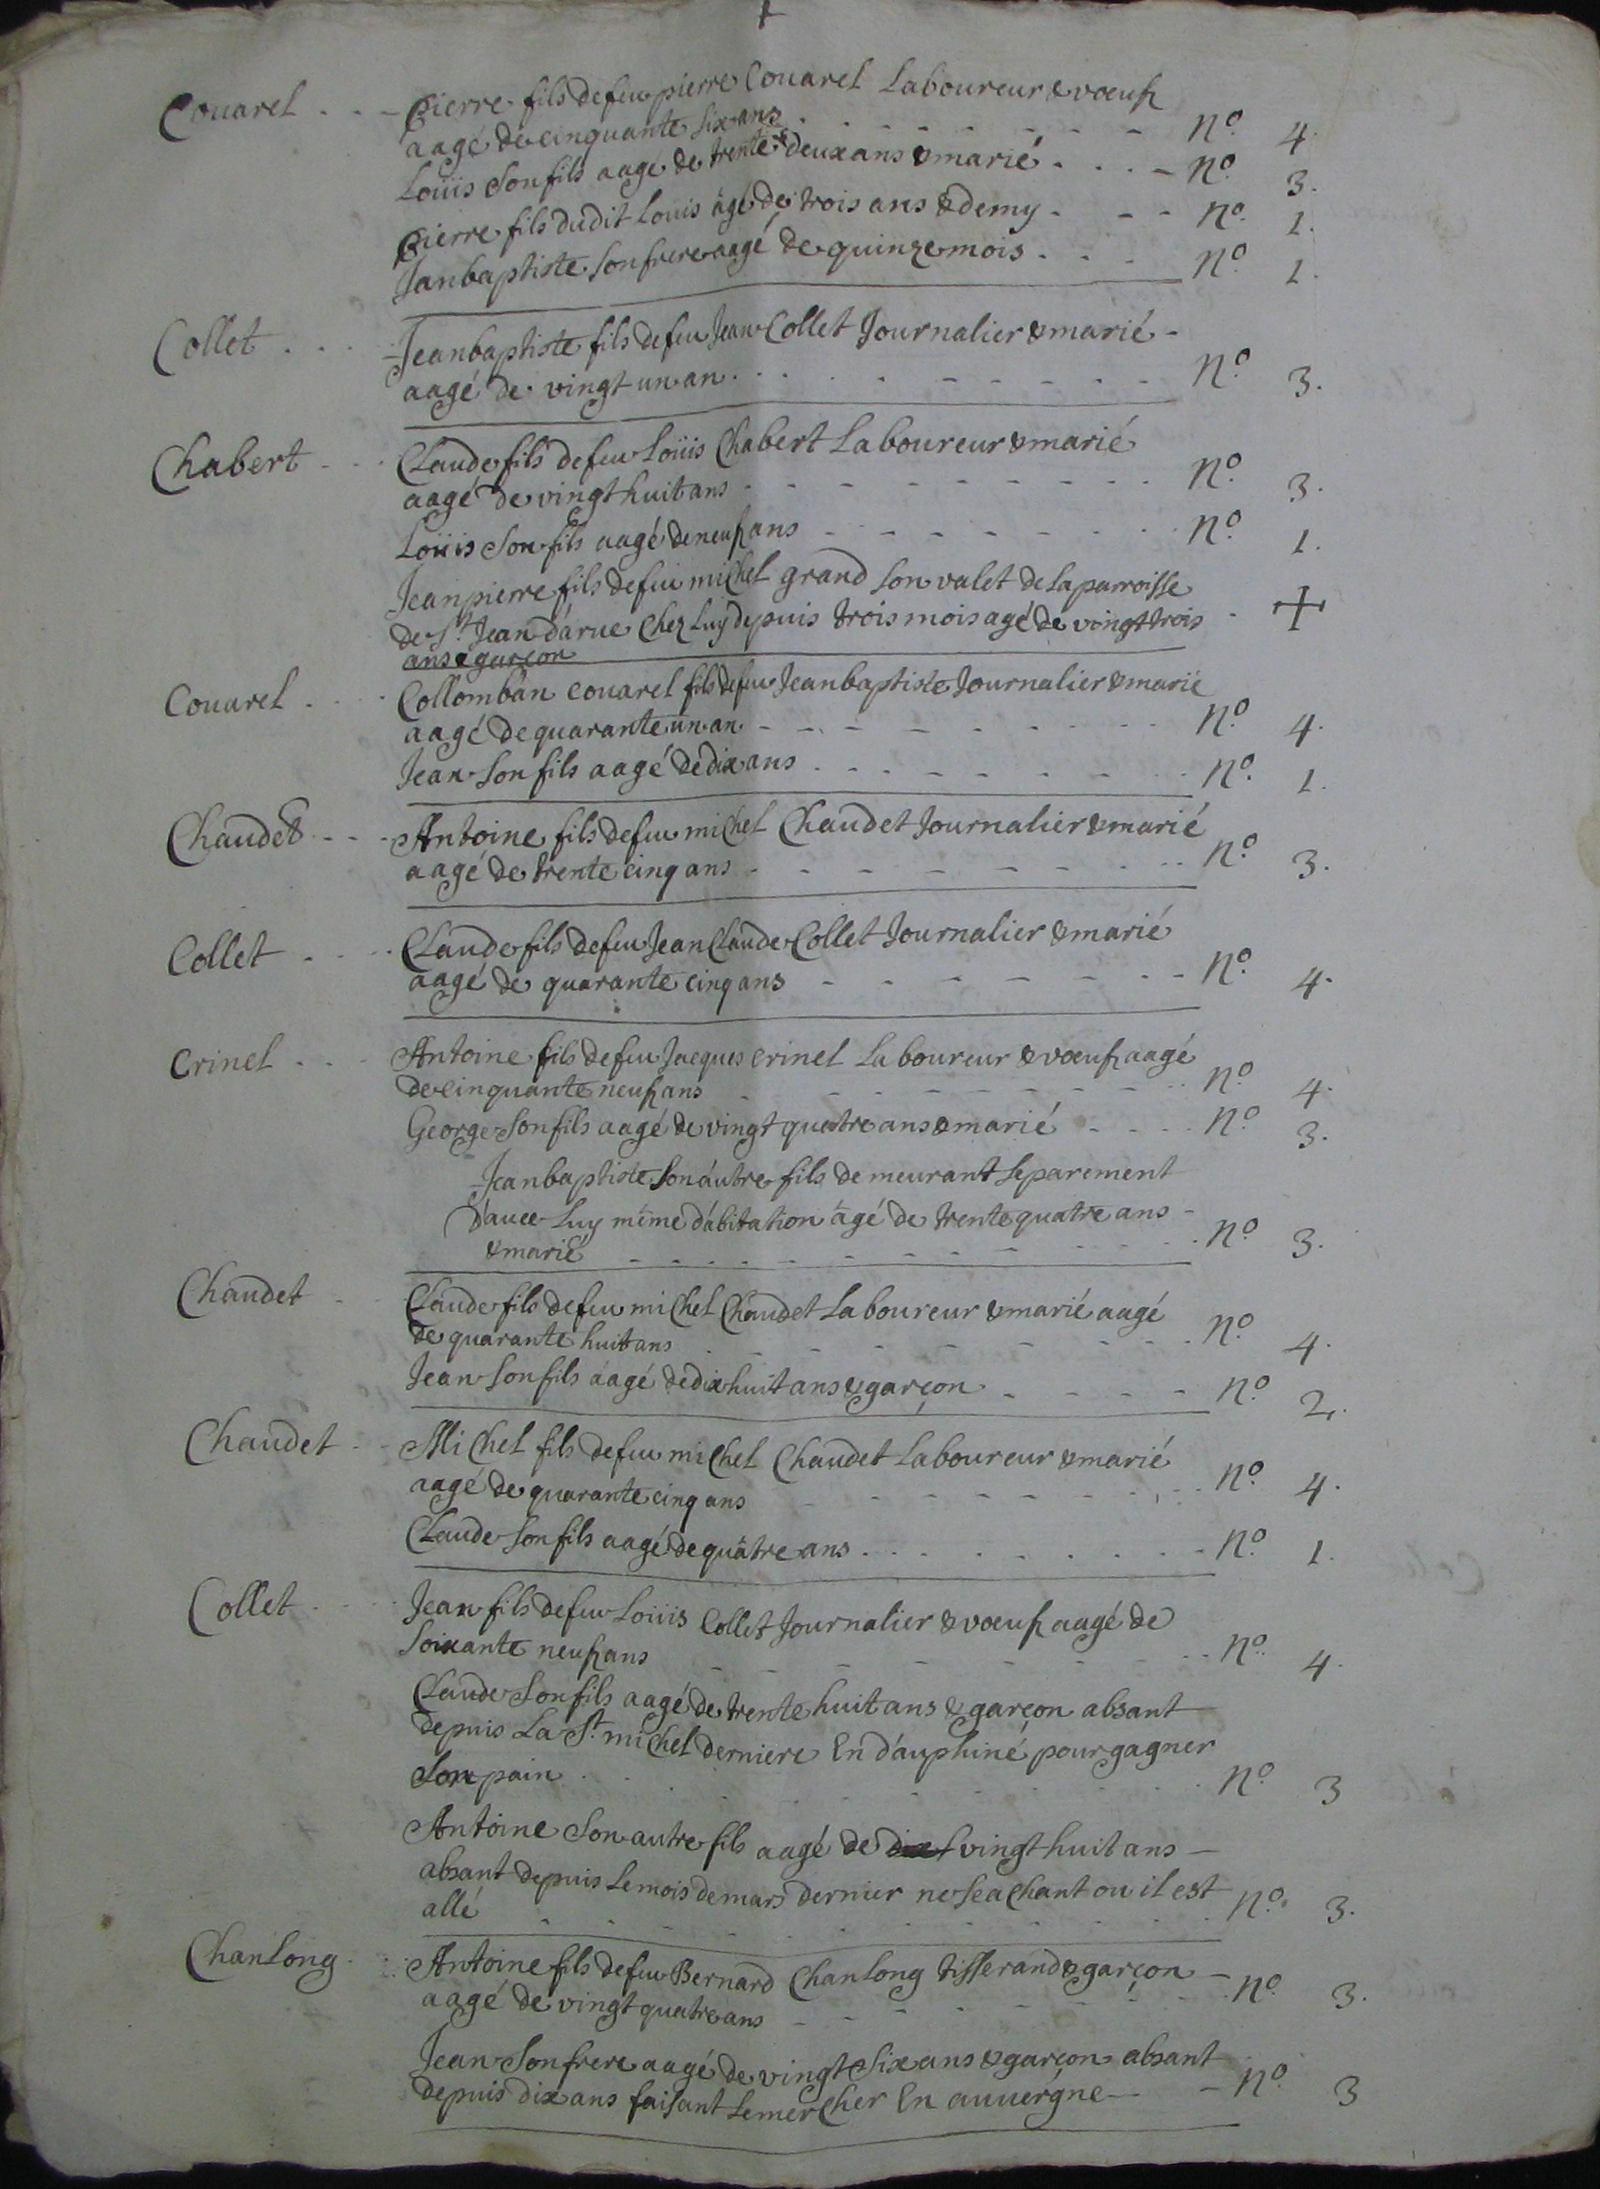 Couarel - - - Pierre fils de feu pierre Couarel Laboureur & vœuf
aagé de cinquante six ans - - - N.o 4.
Loüis son fils aagé de trente deux ans & marié - - - N.o 3.
Pierre fils dudit Loüis agé de trois ans & demy - - - N.o 1.
Janbaptiste son frere aagé de quinze mois - - - N.o 1.
Collet - - - Jeanbaptiste fils de feu Jean Collet Journalier & marié
aagé de vingt un an - - - N.o 3.
Chabert - - - Claude fils de feu Loüis Chabert Laboureur & marié
aagé de vingt huit ans - - - N.o 3.
Loüis son fils aagé de neuf ans - - - N.o 1.
Jeanpierre fils de feu michel grand son valet de la parroisse
de St. Jean d'arue chez Luy depuis trois mois agé de vingt trois - +
ans & garçon
Couarel - - - Collomban couarel fils de feu Jeanbaptiste Journalier & marié
aagé de quarante un an - - - N.o 4.
Jean son fils aagé de dix ans - - - N.o 1.
Chaudet - - - Antoine fils de feu michel Chaudet Journalier & marié
aagé de trente cinq ans - - - N.o 3.
Collet - - - Claude fils de feu Jean Claude Collet Journalier & marié
aagé de quarante cinq ans - - - N.o 4.
Crinel - - - Antoine fils de feu Jacques Crinel Laboureur & vœuf aagé
de cinquante neuf ans - - - N.o 4.
George son fils aagé de vingt quatre ans & marié - - - N.o 3.
Jeanbaptiste son autre fils demeurant separement
d'auec Luy même d'abitation agé de trente quatre ans -
& marié - - - N.o 3.
Chaudet - - - Claude fils de feu michel Chaudet Laboureur & marié aagé
de quarante huit ans - - - N.o 4.
Jean son fils aagé de dix huit ans & garçon - - - N.o 2.
Chaudet - - - Michel fils de feu michel Chaudet Laboureur & marié
aagé de quarante cinq ans - - - N.o 4.
Claude son fils aagé de quatre ans - - - N.o 1.
Collet - - - Jean fils de feu Loüis Collet Journalier & vœuf aagé de
soixante neuf ans - - - N.o 4.
Claude son fils aagé de trente huit ans & garçon absant
depuis La St. michel derniere En d'auphiné pour gagner
son pain - - - N.o 3
Antoine son autre fils aagé de vingt huit ans -
absant depuis le mois de mars dernier ne seachant ou il est
allé - - - N.o 3.
Chanlong - - - Antoine fils de feu Bernard Chanlong tisserand & garçon -
aagé de vingt quatre ans - - - N.o 3.
Jean son frere aagé de vingt six ans & garçon absant
depuis dix ans faisant le mercher En auuergne - - N.o 3